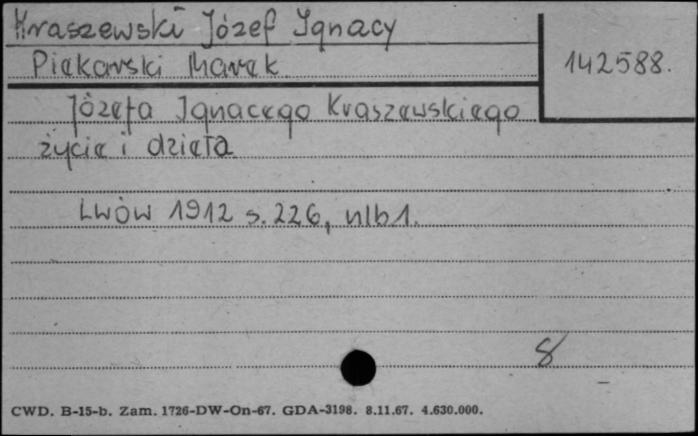 Kraszewski Józef Ignacy
Piekarski Marek
142588.
Józefa Ignacego Kraszewskiego
życie i dzieła
Lwów 1912 s. 226, nlb 1.
8
CWD. B-15-b. Zam. 1726-DW-On-67. GDA-3198. 8.11.67. 4.630.000.